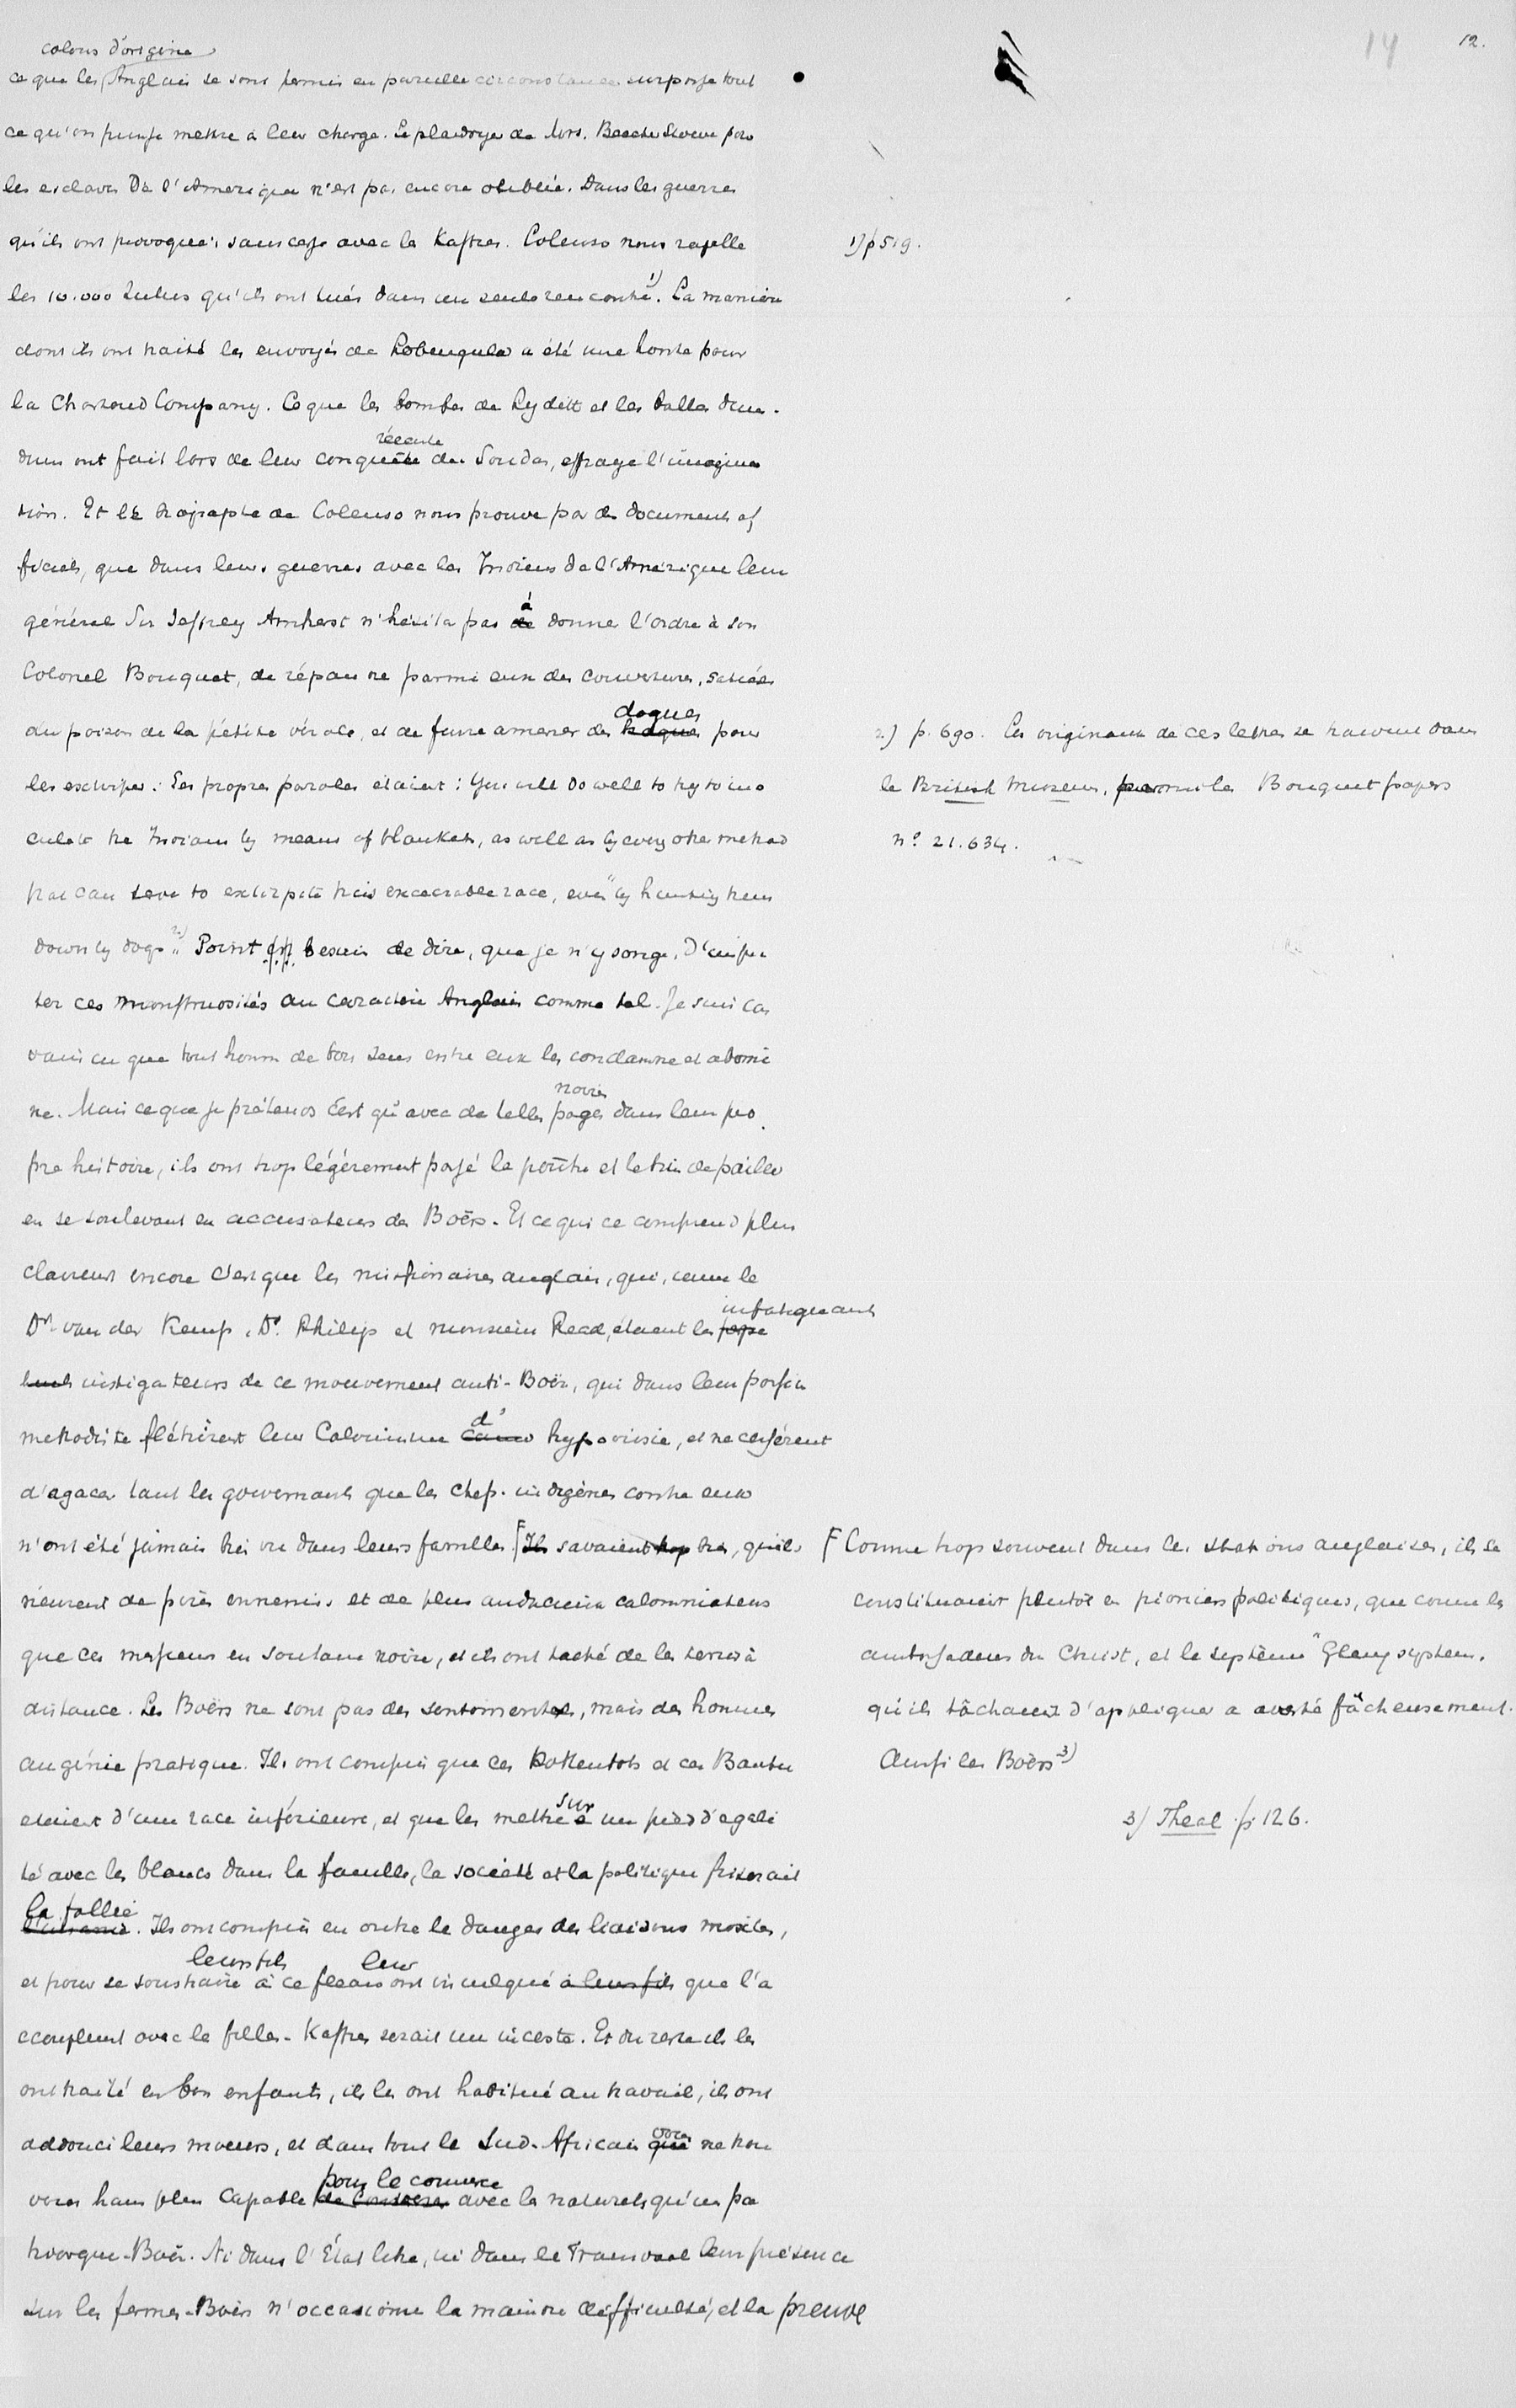 14
12.
colons d'origine
ce que les Anglais se sont permis en pareille circonstance surpasse tout
ce qu'on puisse mettre à leur charge. Le plaidoyer de Mrs. Beecher Stowe pour
les esclaves de l'Amérique n'est pas encore oublié. Dans les guerres
qu'ils ont provoquées sans cesse avec les Kaffres. Colenso nous rapelle
les 10.000 Zulus qu'ils ont tués dans une seule rencontre 1). La manière
dont ils ont traité les envoyés de Lobengula a été une honte pour
la Chartered Company. Ce que les bombes de Lyditt et les balles dum-
dum ont fait lors de leur récente conquête du Soudan, effraye l'imagina
tion. Et le biographe de Colenso nous prouve par des documents of
ficiels, que dans leurs guerres avec les Indiens de l'Amérique leur
général Sir Jeffrey Amherst n'hésita pas de à donner l'ordre à son
Colonel Bouquet, de répandre parmi eux des couvertures, saturées
du poison de la petite vérole, et de faire amener des dogues pour
les extirper. Ses propres paroles étaient: You will do well to try to ino
culate the Indians by means of blankets, as well as by every other method
that can serve to extirpate this excecrable race, even by hunting them
down by dogs" 2) Point besoin de dire, que je n'y songe, d'impu
ter ces monstruosités au caractère Anglais comme tel. Je suis con
vaincu que tout homme de bon sens entre eux les condamne et abomi
ne. Mais ce que je prétends c'est qu'avec de telles pages noires dans leur pro
pre histoire, ils ont trop légèrement passé la poutre et le brin de paille
en se soulevant en accusateurs des Boërs. Et ce qui ce comprend plus
clairement encore c'est que les missionaires anglais, qui, comme le
Dr. van der Kemp, Dr. Philips et monsieur Read, étaient les infatiguants
instigateurs de ce mouvement anti-Boër, qui dans leur
methodiste flétrirent leur Calvinisme d' hypocrisie, et ne cessèrent
d'agacer tant les gouvernants que les chefs indigènes contre eux
n'ont été jamais bien vu dans leurs familles. Ils savaient trop bien, qu'ils
n'eurent de pires ennemis et de plus audacieux calomniateurs
que ces messieurs en soutane noire, et ils ont taché de les tenir à
distance. Les Boërs ne sont pas des sentimentals, mais des hommes
au génie pratique. Ils ont compris que ces Hottentots et ces Bantu
étaient d'une race inférieure, et que les mettre à sur un pied d'égali
té avec les blancs dans la famille, la société et la politique friserait
la follie. Ils ont compris en outre le danger des liaisons mixtes,
et pour se soustraire leurs fils à ce fléau ont leur inculqué à leurs fils que l'a
ccouplement avec les filles-Kaffres serait un inceste. Et du reste ils les
ont traité en bon enfants, ils les ont habitué au travail, ils ont
addouci leurs moeurs, et dans tout le Sud-Africain vous ne trou
verez hom plus capable pour le commerce avec les naturels qu'un pa
triarque-Boër. Ni dans l'État libre, ni dans le Transvaal leur présence
sur les fermes-Boërs n'occasionne la moindre difficulté, et la preuve
1) p 519.
2) p. 690. Les originaux de ces lettres se trouvent dans
le British Museum, parmi les Bouquet papers
n° 21.634.
F Comme trop souvent dans les stations anglaises, ils se
constituaient plutôt en pionniers politiques, que comme les
ambassadeurs du Christ, et le système "Glenny system.
qu'ils tâchaient d'appliquer a avorté fâcheusement.
Aussi les Boërs 3)
3) Theal p. 126.